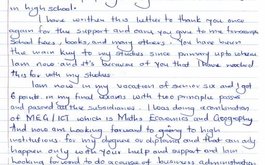 in high school.
I have written this letter to thank you once
again for the support and care you gave to me through
school fees, books, and many others. You have been
the main key to my studies since primary upto where
I am now and it's because of you that I have reached
this far with my studies
I am now in my vacation of senior six and I got
6 points in my final exams with two principle passes
and passed all the subsidiaries. I was doing combination
of MEG/ICT which is Maths Economics and Geography
And now am looking forward to going to high
institutions for my degree or diploma and that can only
happen only with your help and support and I am
looking forward to do a course of business administration